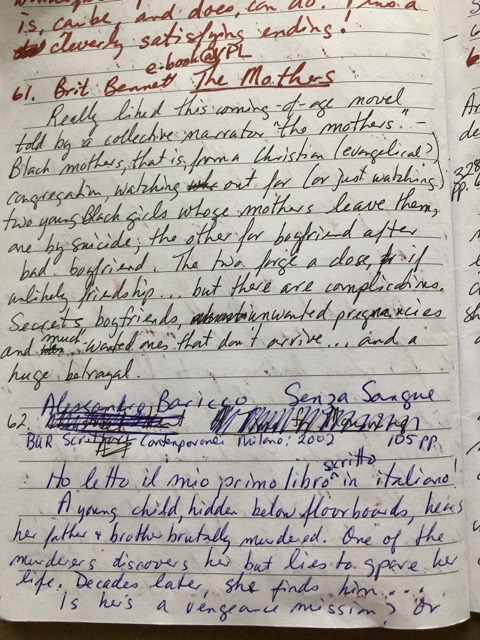 is, can be, and does, can do. And a
cleverly satisfying ending!
e-book @ VPL
61. Brit Bennett The Mothers
Really liked this coming-of-age novel
told by a collective narrator "the mothers." –
Black mothers, that is, from a Christian (evangelical?)
congregation, watching out for (or just watching)
two young Black girls whose mothers leave them,
one by suicide, the other for boyfriend after
bad boyfriend. The two forge a close, if
unlikely friendship... but there are complications.
Secrets, boyfriends, unwanted pregnancies
and much-wanted ones that don't arrive... and a
huge betrayal.
Alessandro Baricco Senza Sangue
62.
BUR Scrittori Contemporanei Milano: 2002 105 pp.
Ho letto il mio primo libro scritto in italiano!
A young child, hidden below floorboards, hears
her father & brother brutally murdered. One of the
murderers discovers her but lies to spare her
life. Decades later, she finds him....
Is hers a vengeance mission? Or
328
pp.